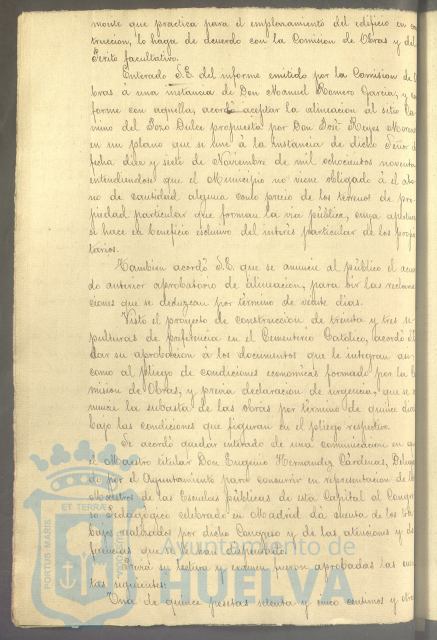 monte que practica para el emplazamiento del edificio en cons
truccion, lo haga de acuerdo con la Comision de Obras y del
Perito facultativo.
Enterado S.E. del informe emitido por la Comision de O
bras á una instancia de Don Manuel Romero Garcia, y con
forme con aquella, acordó aceptar la alineacion al sitio ca
mino del Pozo Dulce propuesta por Don José Reyes Moreno
en un plano que se une á la instancia de dicho Señor
fecha diez y siete de Noviembre de mil ochocientos noventa
entendiendose que el Municipio no viene obligado á el abo
no de cantidad alguna como precio de los terrenos de pro
piedad particular que forman la via pública, cuya apertura
se hace en beneficio esclusivo del interés particular de los propie
tarios.
Tambien acordó S.E. que se anuncie al público el acuer
do anterior aprobatorio de alineacion, para oir las reclama
ciones que se deduzcan por término de veinte dias.
Visto el proyecto de construccion de treinta y tres se
pulturas de preferencia en el Cementerio Católico, acordó S.E.
dar su aprobacion á los documentos que le integran asi
como al pliego de condiciones economicas formado por la Co
mision de Obras, y previa declaracion de urgencia, que se a
nuncie la subasta de las obras por término de quince dias
bajo las condiciones que figuran en el pliego respectivo.
Se acordó quedar enterado de una comunicacion en que
el Maestro titular Don Eugenio Hernandez Cárdenas, Delega
do por el Ayuntamiento para concurrir en representacion de los
Maestros de las Escuelas públicas de esta Capital al Congre
so Pedagógico celebrado en Madrid dá cuenta de los tra
bajos realizados por dicho Congreso y de las atenciones y de
ferencias que le han dispensado.
Previa su lectura y examen fueron aprobadas las cuen
tas siguientes:
Una de quince pesetas setenta y cinco centimos y otra
PORTUS MARIS
ET TERRÆ
CUSTODIA
Ayuntamiento de
HUELVA